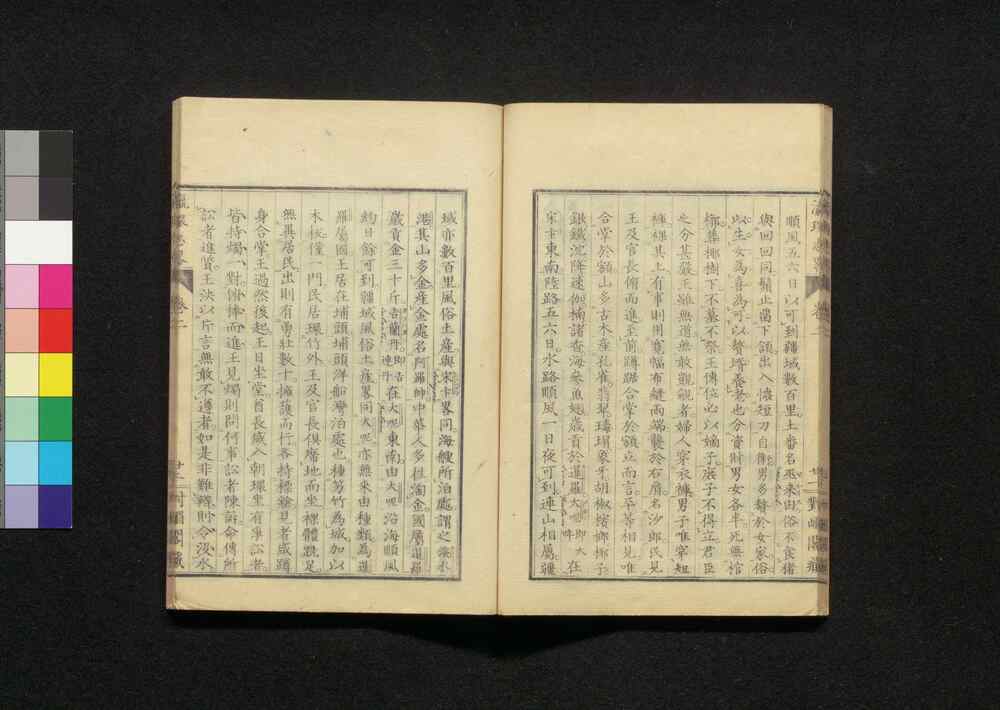 順風五六日以可到疆域數百里土番名巫來由俗不食猪
與回回同鬚止留下頷出入懷短刀自衛男多贅於女家俗
以生女為喜為可以贅壻養老也分資財男女各半死無棺
槨葬椰樹下不墓不祭王傳位必以嫡子庶子不得立君臣
之分甚嚴王雖無道無敢覬覦者婦人穿衣褲男子唯穿短
褲裸其上有事則用寬幅布縫兩端襲於右肩名沙郎民見
王及官長俯而進至前蹲踞合掌於額立而言平等相見唯
合掌於額山多古木產孔雀翡翠瑇瑁象牙胡椒檳榔椰子
銀鐵沈降速伽楠諸香海參魚翅歲貢於暹羅大呢即大𠵽在
宋卡東南陸路五六日水路順風一日夜可到連山相屬疆
卷二
域亦數百里風俗土產與宋卡畧同海艘所泊處謂之淡水
港其山多金產金處名阿羅帥中華人多往淘金國屬暹羅
歲貢金三十斤吉蘭丹即吉連丹在大呢東南由大呢沿海順風
約日餘可到疆域風俗土產畧同大呢亦無來由種類為暹
羅屬國王居在埔頭埔頭洋船灣泊處也種竻竹為城加以
木板僅一門民居環竹外王及官長俱席地而坐裸體跣足
無異居民出則有勇壯數十擁護而行各持標槍見者咸蹲
身合掌王過然後起王日坐堂酋長咸入朝環坐有爭訟者
皆持燭一對俯捧而進王見燭則問何事訟者陳訴命傳所
訟者進質王決以片言無敢不遵者如是非難辨則令沒水
卷二